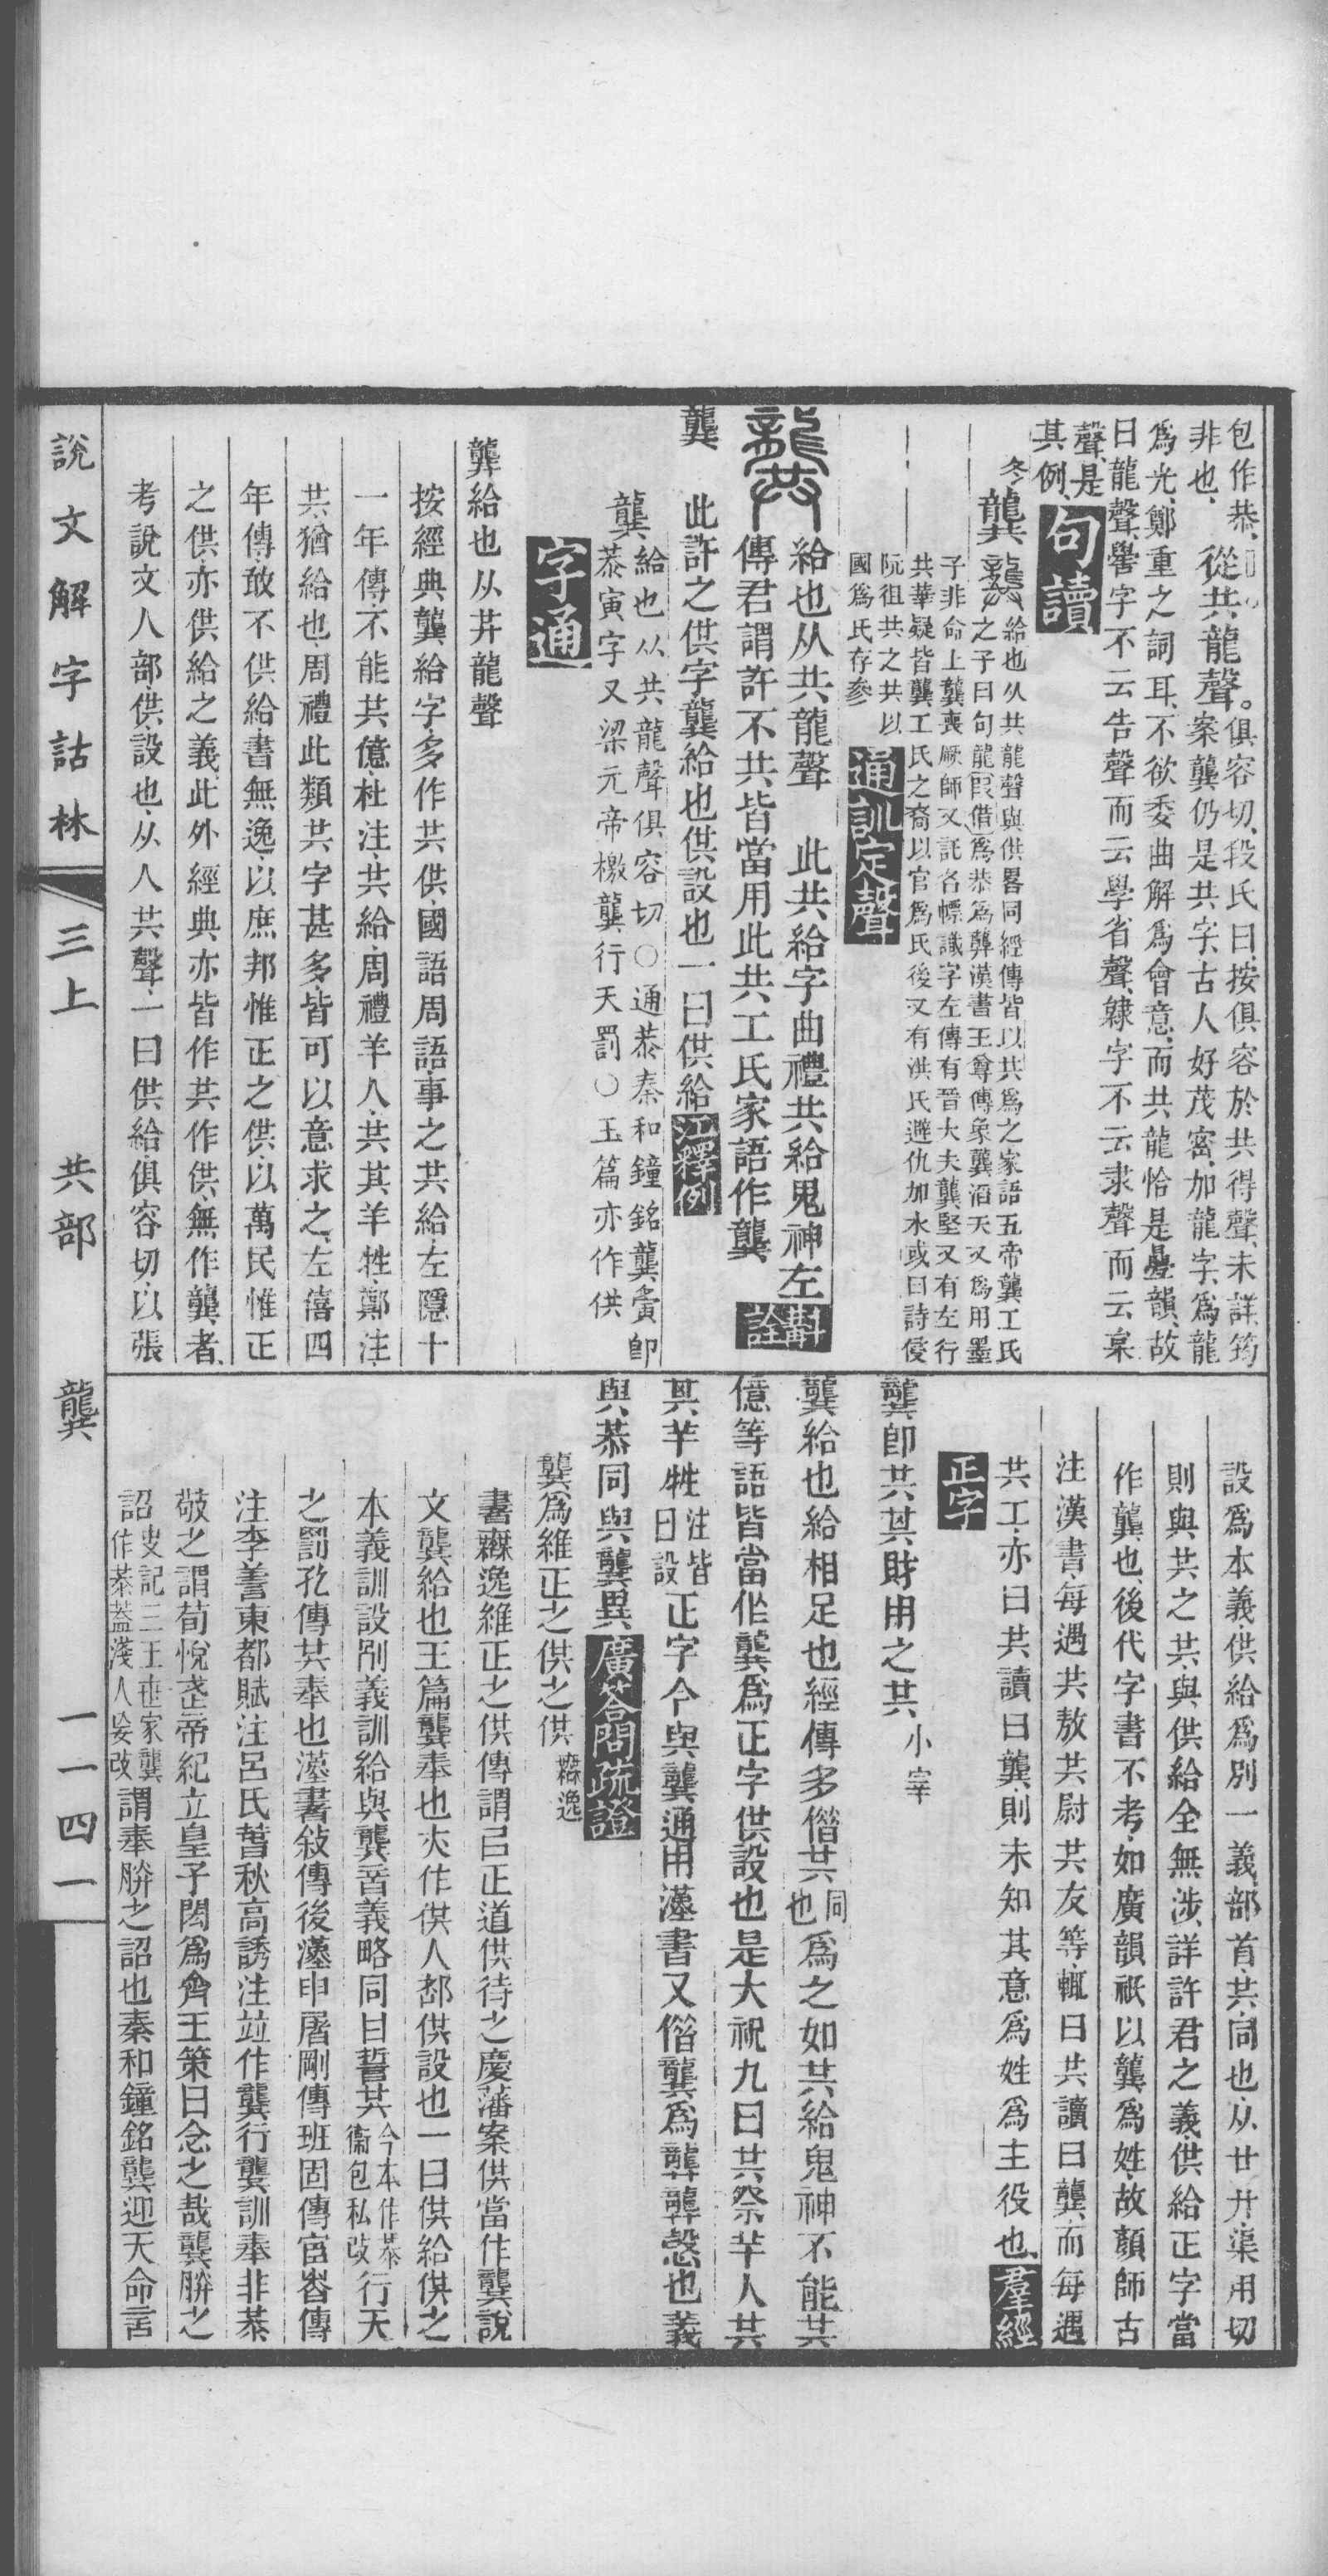 包作恭
非也、從共龍聲。俱容切、段氏曰、按俱容於共得聲、未詳、筠
案龔仍是共字、古人好茂密、加龍字、爲龍
爲光、鄭重之詞耳、不欲委曲解爲會意、而共龍恰是疊韻、故
曰龍聲、嚳字不云告聲、而云學省聲、隸字不云隶聲、而云枲
聲、是
其例、
句讀
龔 給也从共龍聲與供畧同經傳皆以共爲之家語五帝龔工氏
之子曰句龍叚借爲恭爲龏漢書王尊傳象龔滔天又爲用墨
子非命上龔喪厥師又託名幖識字左傳有晉大夫龔堅又有左行
共華疑皆龔工氏之裔以官爲氏後又有洪氏避仇加水或曰詩侵
阮徂共之共以
國爲氏存參
通訓定聲
給也从共龍聲 此共給字曲禮共給鬼神左
傳君謂許不共皆當用此共工氏家語作龔
斠詮
龔 此許之供字龔給也供設也一曰供給
江釋例
龔 給也从共龍聲俱容切○通恭秦和鐘銘龔夤卽
恭寅字又梁元帝檄龔行天罰○玉篇亦作供
字通
龔給也从共龍聲
按經典龔給字、多作共供、國語周語、事之共給、左隱十
一年傳、不能共億、杜注、共給、周禮羊人、共其羊牲、鄭注、
共、猶給也、周禮此類共字甚多、皆可以意求之、左僖四
年傳敢不供給、書無逸、以庶邦惟正之供、以萬民惟正
之供、亦供給之義、此外經典亦皆作共作供、無作龔者、
考說文人部、供、設也、从人共聲、一曰供給、俱容切、以張
設爲本義、供給爲別一義、部首、共、同也、从廿廾、渠用切
則與共之共、與供給全無涉、詳許君之義供給正字當
作龔也、後代字書不考、如廣韻祇以龔爲姓、故顏師古
注漢書、每遇共敖共尉共友等、輒曰共讀曰龔、而每遇
共工、亦曰共讀曰龔、則未知其意爲姓爲主役也、
羣經
正字
龔卽共其財用之共 小宰
龔給也給相足也經傳多偕共同也爲之如共給鬼神不能共
億等語皆當作龔爲正字供設也是大祝九曰共祭羊人共
其羊牲注皆曰設正字今與龔通用漢書又偕龔爲龏龏愨也義
與恭同與龔異
廣答問疏證
龔爲維正之供之供 無逸
書無逸維正之供傳謂㠯正道供待之慶藩案供當作龔說
文龔給也玉篇龔奉也亦作供人部供設也一曰供給供之
本義訓設別義訓給與龔音義略同甘誓共今本作恭衞包私改行天
之罰孔傳共奉也漢書敍傳後漢申屠剛傳班固傳官者傳
注李善東都賦注呂氏春秋高誘注竝作龔行龔訓奉非恭
敬之謂荀悅武帝紀立皇子閎爲齊王策曰念之哉龔朕之
詔史記三王世家龔作恭蓋淺人妄改謂奉朕之詔也秦和鐘銘龔迎天命言
說文解字詁林 三上 共部 龔 一一四一